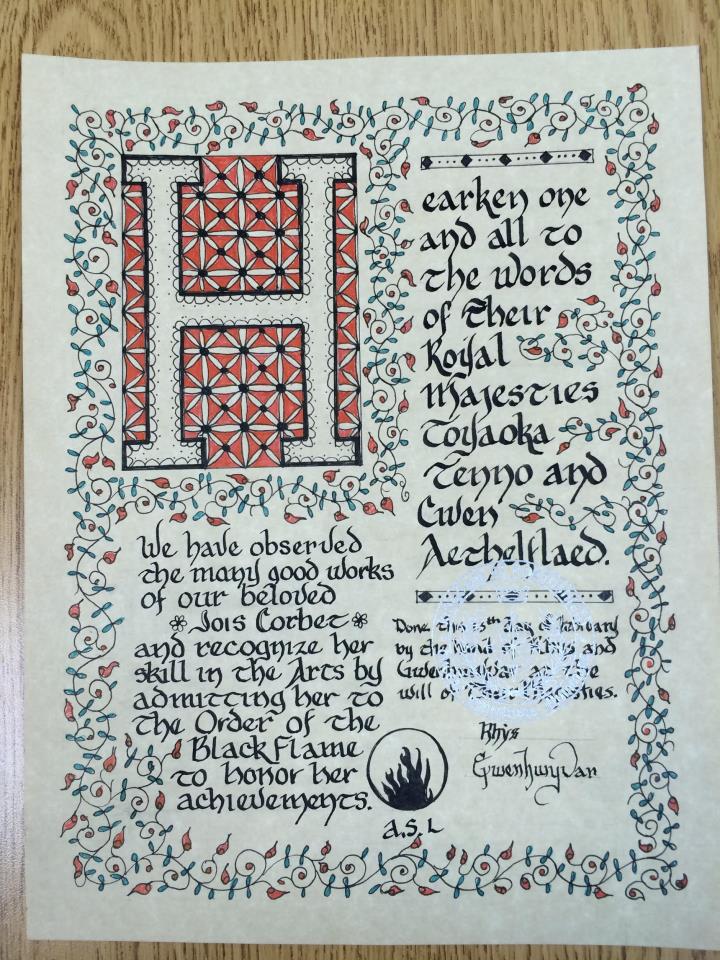 H
earken one
and all to
the words
of Their
Royal
Majesties
Toyaoka
Tenno and
Cwen
Aethelflaed.
We have observed
the many good works
of our beloved
Jois Corbet
and recognize her
skill in the Arts by
admitting her to
the Order of the
Black Flame
to honor her
achievements.
A.S. L
Done this 15th day of January
by the hand of Rhys and
Gwenhwyvar at the
will of Their Majesties.
Rhys
Gwenhwyvar